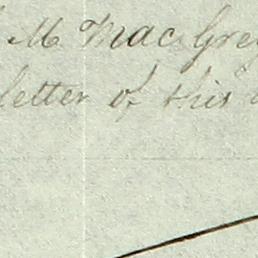 M MacGreg
letter of this